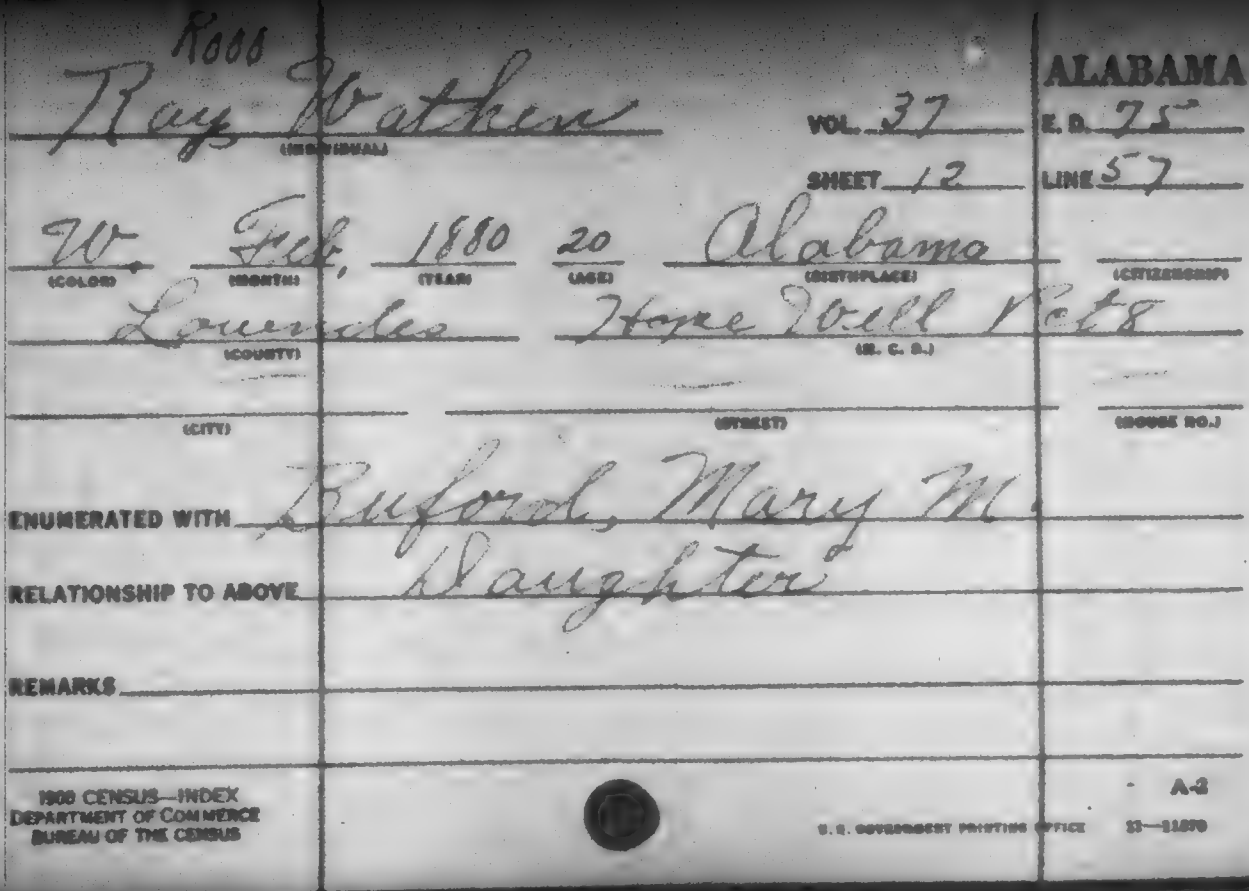 R000
ALABAMA
Ray, Wathen
(INDIVIDUAL)
VOL. 37 E. D. 75
SHEET 12 LINE 57
W. Feb, 1880 20 Alabama
(COLOR) (MONTH) (YEAR) (AGE) (BIRTHPLACE) (CITIZENSHIP)
Lowndes Hope Well Pct 8
(COUNTY) (M. C. D.)
(CITY) (STREET) (HOUSE NO.)
ENUMERATED WITH Buford, Mary M.
RELATIONSHIP TO ABOVE Daughter
REMARKS
A-2
1900 CENSUS—INDEX
DEPARTMENT OF COMMERCE
BUREAU OF THE CENSUS
U.S. GOVERNMENT PRINTING OFFICE